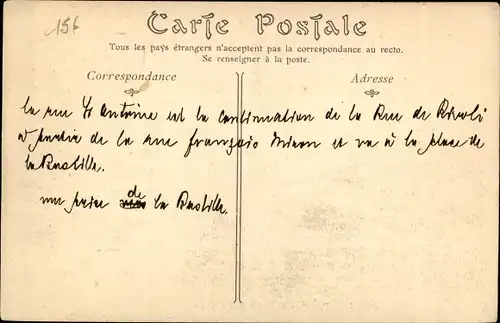 156
Carte Postale
Tous les pays étrangers n'acceptent pas la correspondance au recto.
Se renseigner à la poste.
Correspondance
Adresse
la rue St Antoine est la continuation de la Rue de Rivoli
à partir de la rue françois Miron et va à la place de
la Bastille.
vue prise de la Bastille.